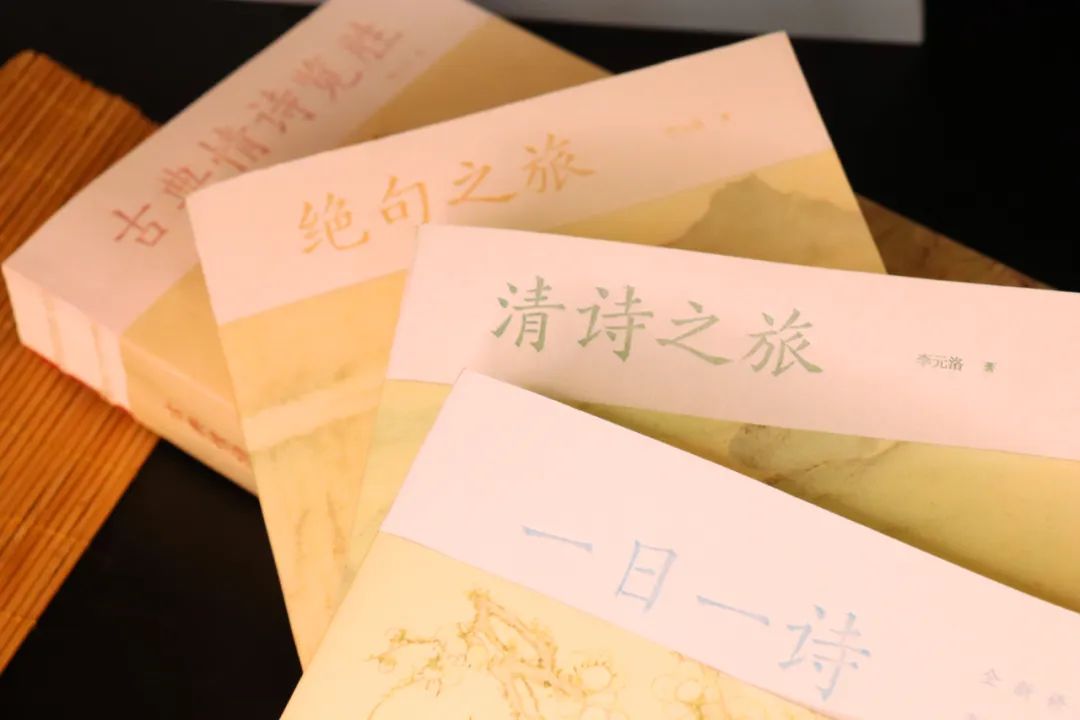 古典情诗览胜
绝句之旅
清诗之旅
李元洛 著
一日一诗